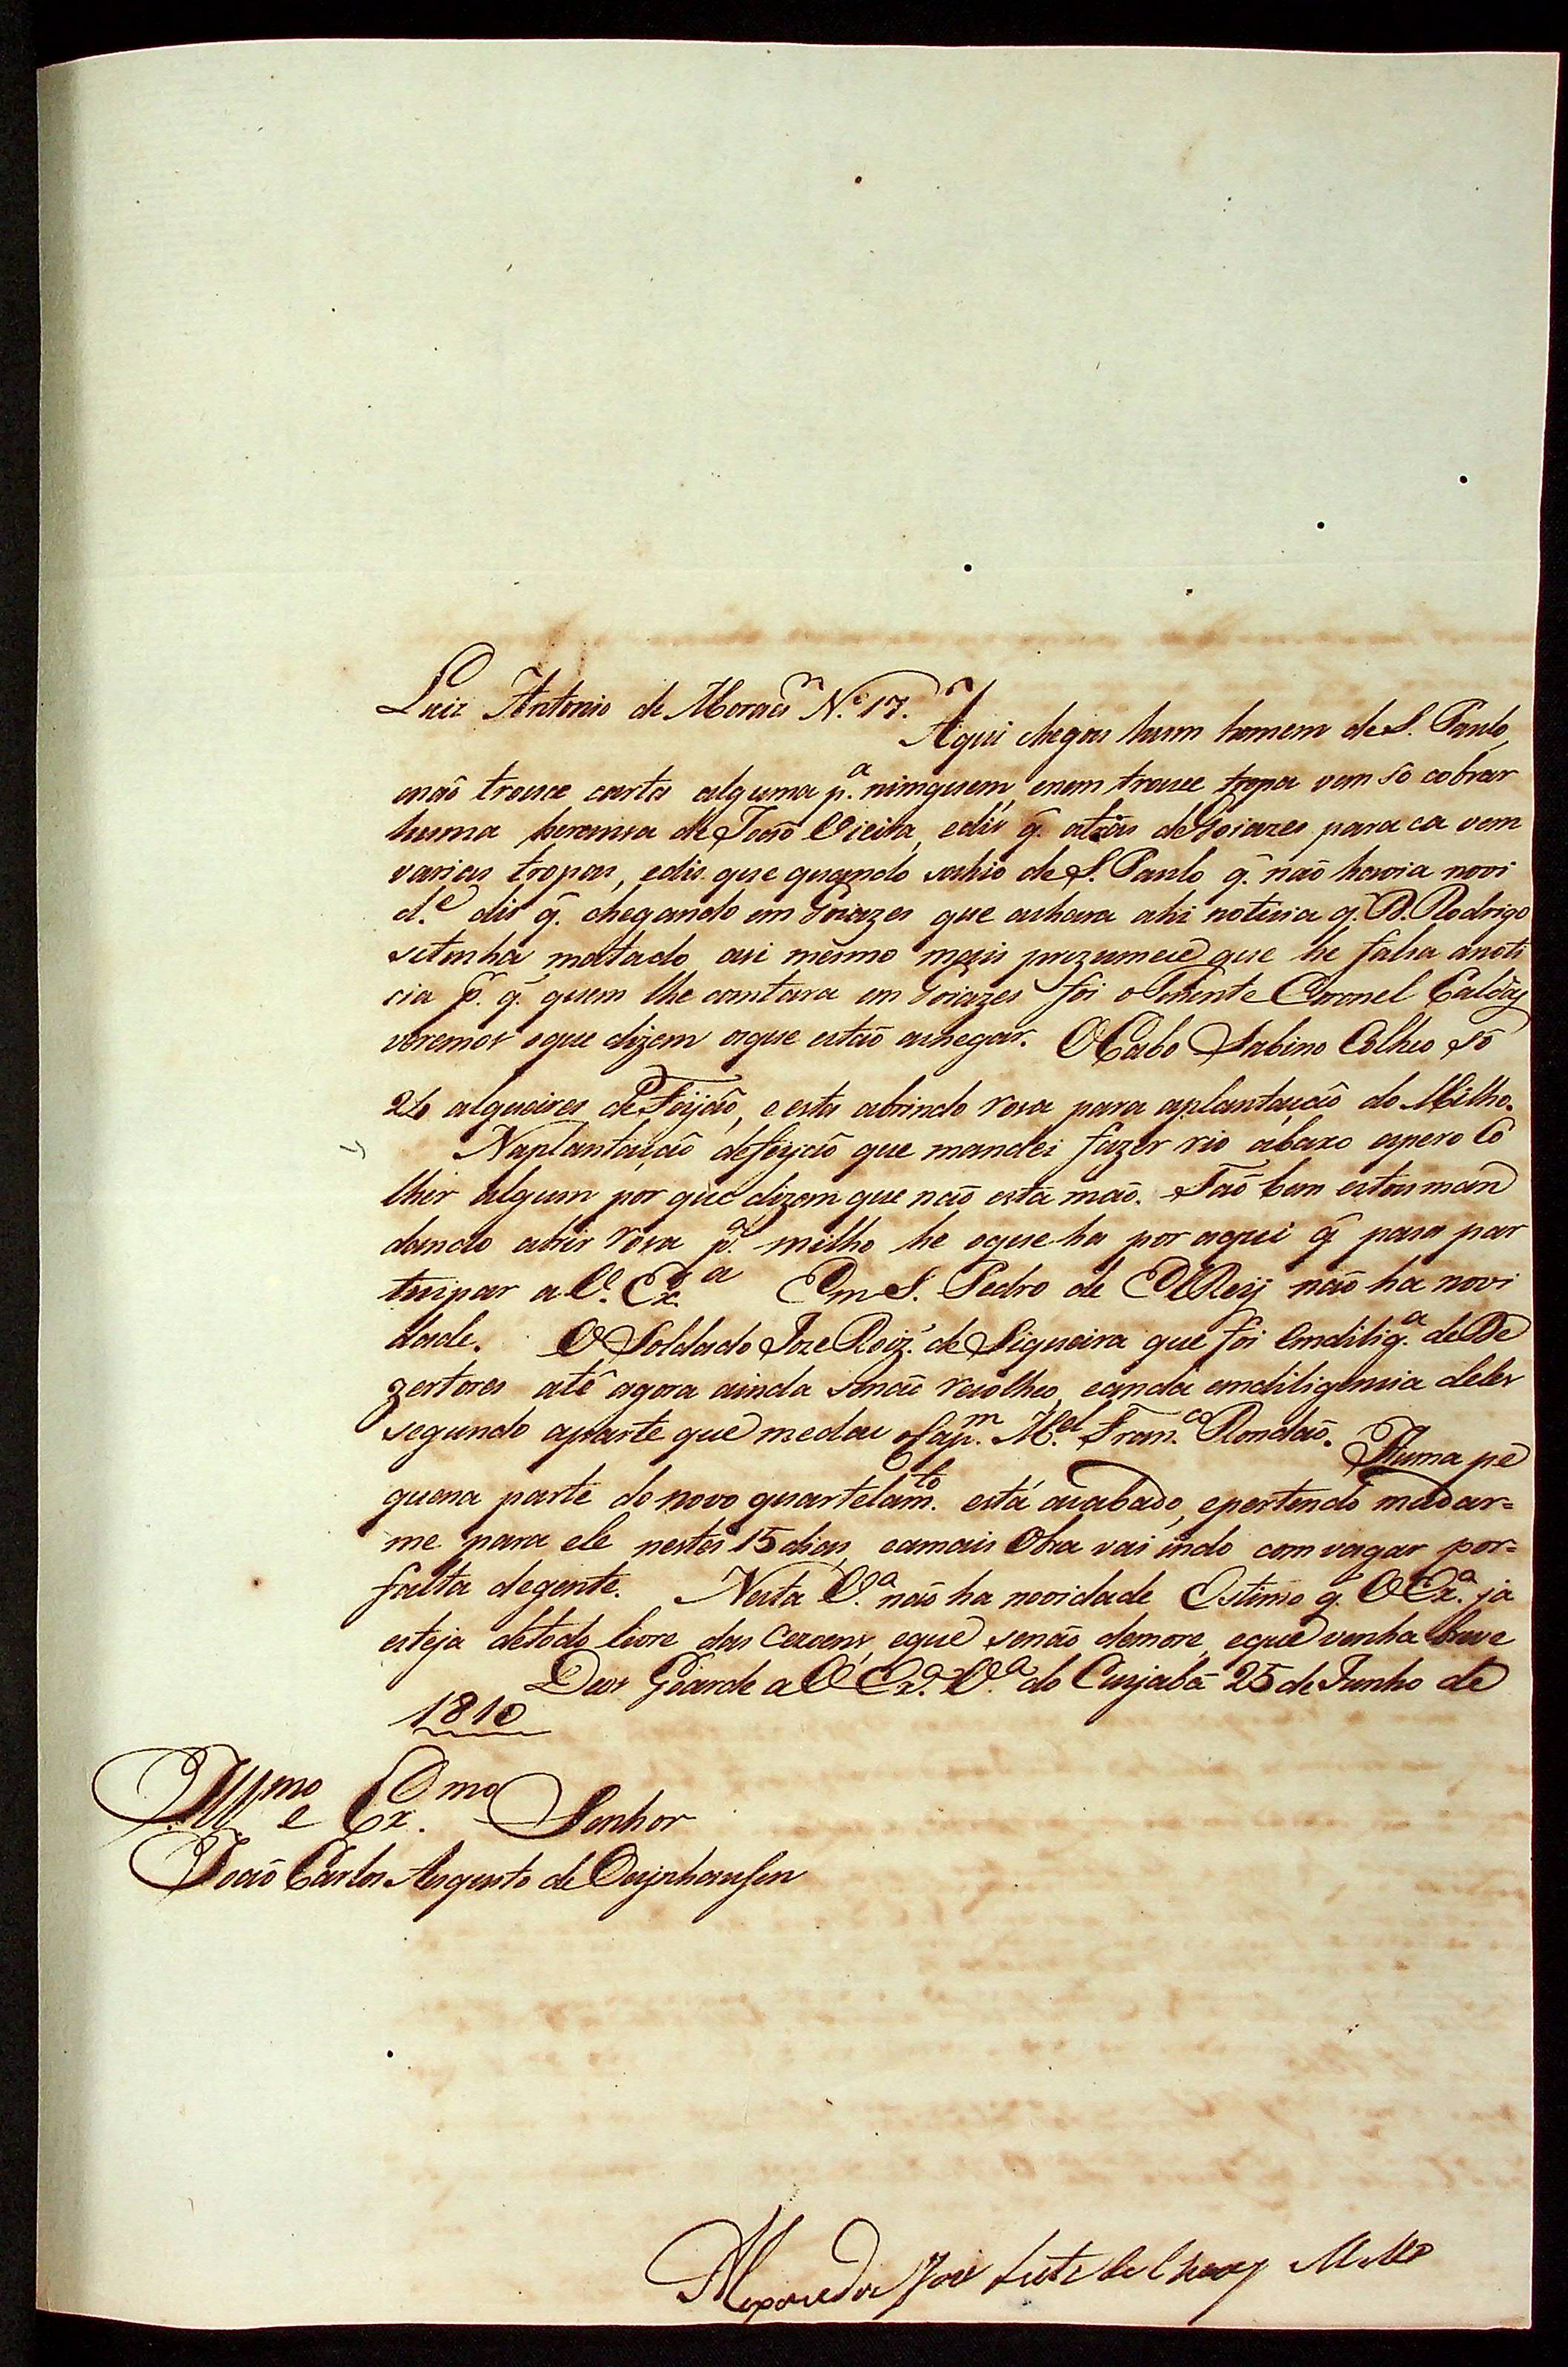 Luiz Antonio de Moraes N.º 17.
Aqui chegou hum homem de S. Paulo,
enaõ trouce carta alguma p.ª nimguem, enem trouce tropa vem so cobrar
huma heransa de Joaõ Vieira, ediz q̃ atras de Goiazes para ca vem
varias tropas, edis que quando sahio de S. Paulo q̃ naõ havia novi
d.e dis q̃ chegando em Goiazes que achara ahi noticia q̃ D. Rodrigo
setinha matado asi mesmo mais prezumese que he falsa anoti
cia p.r q̃ quem lhe contara em Goiazes foi o Tenente Coronel Caldas
veremos oque dizem osque estaõ achegar. O Cabo Sabino Colheo só
240 alqueires de Feijaõ, e esta abrindo rosa para aplantaçaõ do Milho.
Naplantaçaõ defeijaõ que mandei fazer rio abaxo espero Co
lher algum por que dizem que naõ está máo. Taõ bem estou man
dando abrir rosa p.ª milho he oque ha por aqui q̃ possa par
tecipar a V. Ex.ª Em S. Pedro de ElRey naõ ha novi
dade. O Soldado Joze Roiz' de Siqueira que foi Emdilig.ª de De
zertores até agora ainda senaõ recolheo, eanda emdiligencia deles
segundo aparte que medeu o Cap.m M.el Fran.co Rondaõ. Huma pe
quena parte do novo quartelam.to está acabado, epertendo mudar=
me para ele nestes 15 dias, eamais Obra vai indo com vagar por=
falta degente. Nesta V.ª naõ ha novidade Estimo q̃ V Ex.ª ja
esteja detodo livre das Cezoens, eque senaõ demore, eque venha breve
Deos Guarde a V Ex.ª V.ª do Cuyabá 25 de Junho de
1810
Ill.mo e Ex.mo Senhor
Joaõ Carlos Augusto de Oeynhausen
Joze Leite